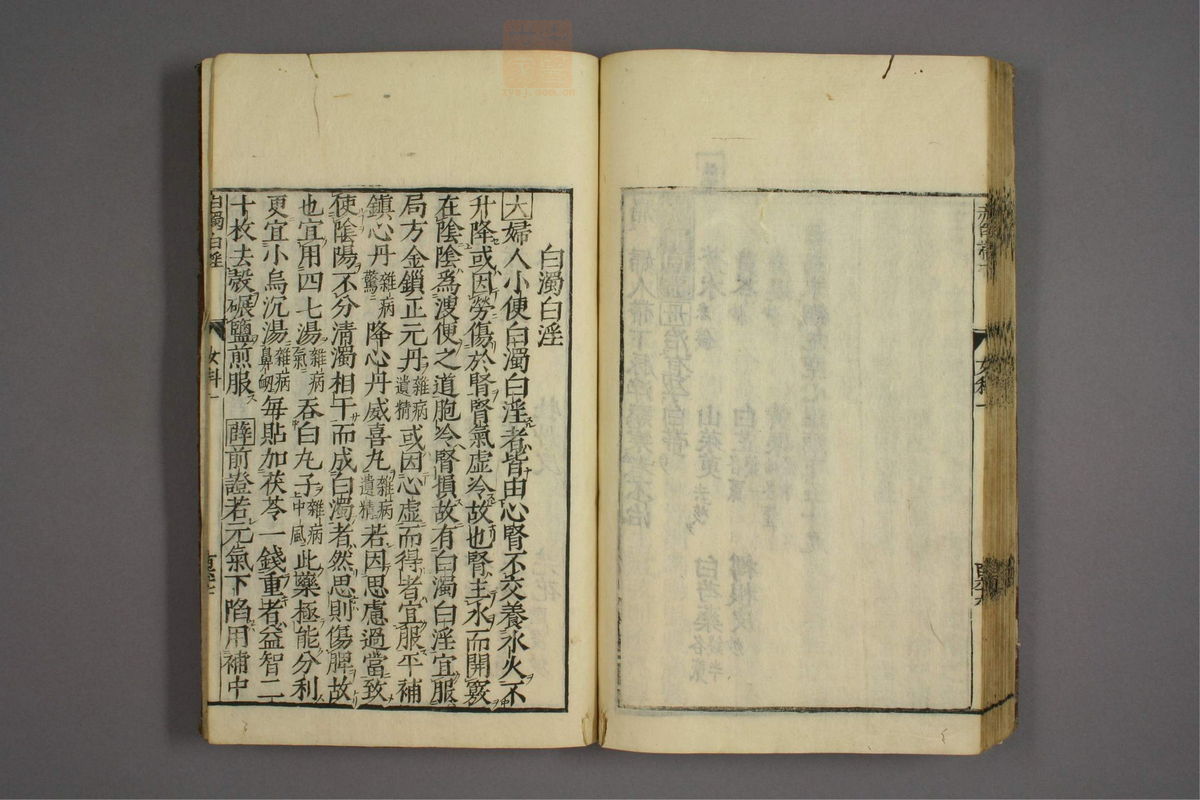 赤白帶下
女科一
白濁白淫
大婦人小便白濁白淫者皆由心腎不交養水火不
升降或因勞傷於腎腎氣虛冷故也腎主水而開竅
在陰陰爲溲便之道胞冷腎損故有白濁白淫宜服
局方金鎖正元丹雜病遺精或因心虛而得者宜服平補
鎮心丹雜病驚降心丹威喜丸雜病遺精若因思慮過當致
使陰陽不分清濁相干而成白濁者然思則傷脾故
也宜用四七湯雜病氣吞白丸子雜病中風此藥極能分利
更宜小烏沉湯雜病鼻衂每貼加茯苓一錢重者益智二
十枚去殼碾鹽煎服 薛前證若元氣下陷用補中
白濁白淫
女科一